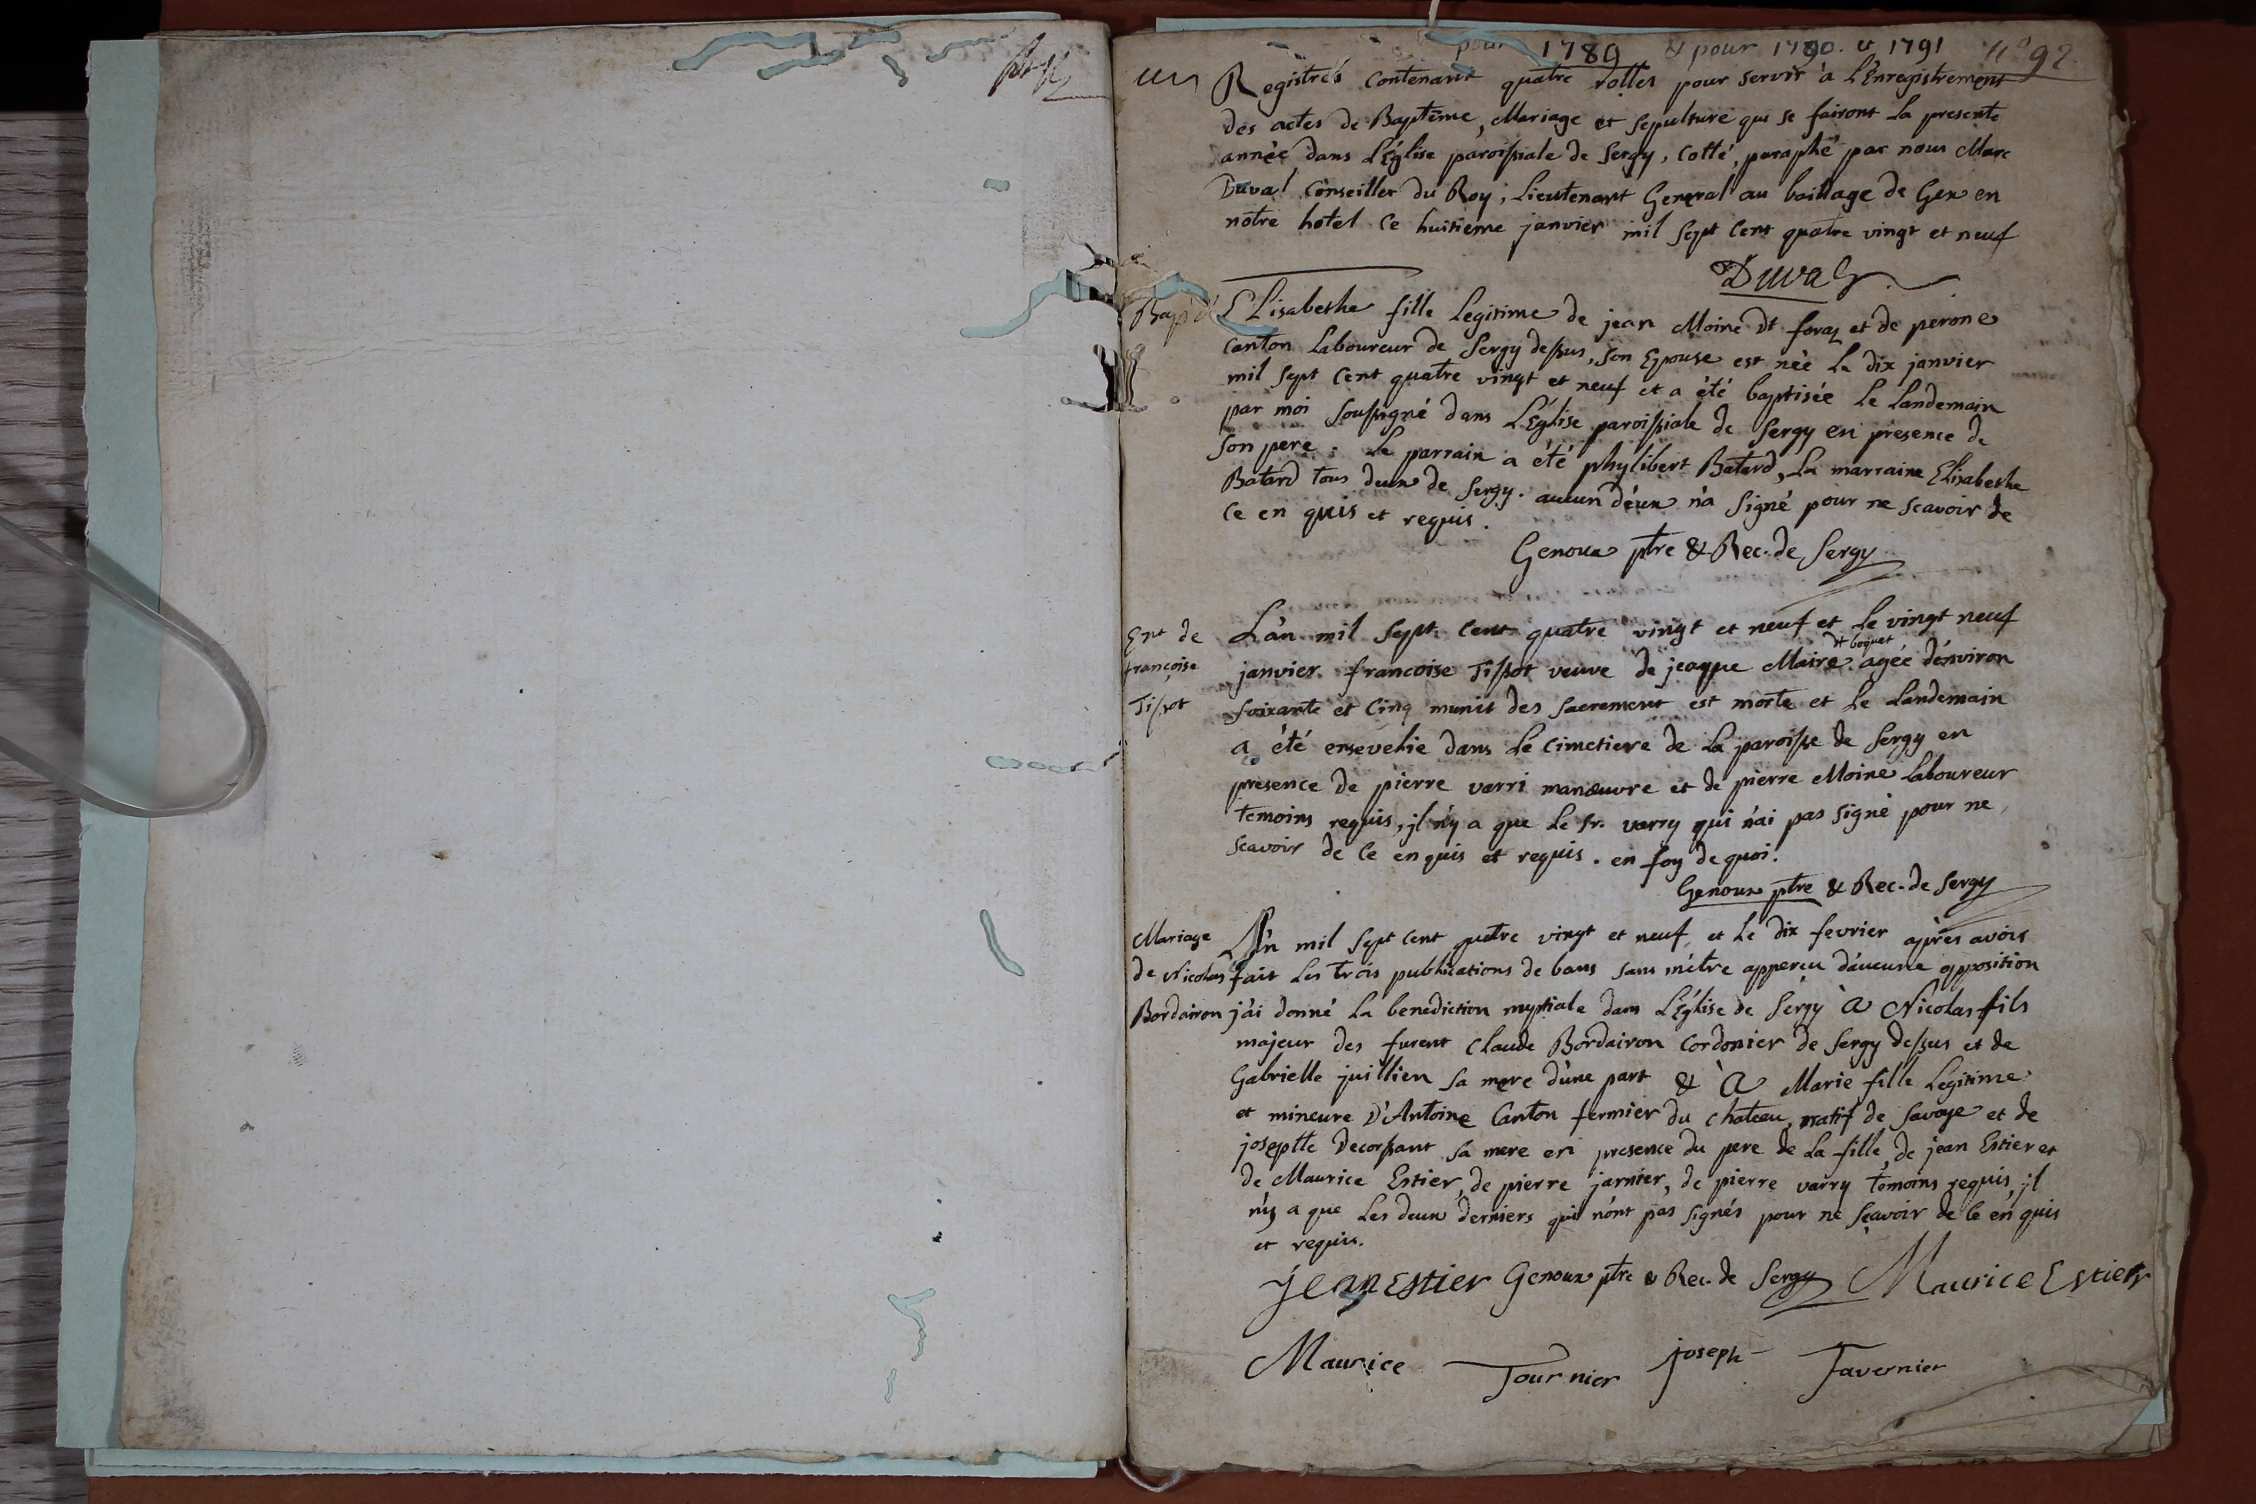 pour 1789 & pour 1790. & 1791 n° 92.
un
Registres contenant quatre rolles pour servir à L'Enregistrement
des actes de Baptême, Mariage et sepulture qui se fairont La presente
année dans L'Église paroissiale de Sergy, cotté, paraphé par nous Marc
Duval Conseiller du Roy, Lieutenant General au bailliage de Gex en
notre hotel ce huitieme janvier mil sept cent quatre vingt et neuf
Duval
Bap. d'
Elisabethe fille Legitime de jean Moine dt foraz et de perone
Canton Laboureur de Sergy dessus, son Epouse est née Le dix janvier
mil sept cent quatre vingt et neuf et a été baptisée Le Landemain
par moi soussigné dans L'Église paroissiale de Sergy en presence de
son pere. Le parrain a été phylibert Batard, La marraine Elisabethe
Batard tous deux de Sergy. aucun d'eux n'a signé pour ne scavoir de
ce en quis et requis.
Genoux ptre & Rec. de Sergy
Ent de
françoise
Tissot
L'an mil sept cent quatre vingt et neuf et Le vingt neuf
janvier francoise Tissot veuve de jeaque Maire dt boquet agée d'environ
soixante et cinq munit des sacrement est morte et Le Landemain
a été ensevelie dans Le cimetiere de La paroisse de Sergy en
presence de pierre varri manœuvre et de pierre Moine Laboureur
temoins requis, jl n'y a que Le sr. varry qui n'ai pas signé pour ne
scavoir de ce en quis et requis. en foy de quoi.
Genoux ptre & Rec. de Sergy
Mariage
de Nicolas
Bordairon
L'An mil sept cent quatre vingt et neuf et Le dix fevrier après avoir
fait Les trois publications de bans sans m'être apperçu d'aucune opposition
j'ai donné La benediction nuptiale dans L'Église de Sergy à Nicolas fils
majeur des furent Claude Bordairon Cordonier de Sergy dessus et de
Gabrielle juillien sa mere d'une part & à Marie fille Legitime
et mineure D'Antoine Canton fermier du chateau, natif de Savoye et de
josephte Decorsant sa mere en presence du pere de La fille, de jean Estier et
de Maurice Estier, de pierre jarnier, de pierre varry temoins requis, jl
n'y a que Les deux derniers qui n'ont pas signés pour ne scavoir de ce en quis
et requis.
jean Estier Genoux ptre & Rec. de Sergy Maurice Estier
Maurice Tournier joseph Tavernier